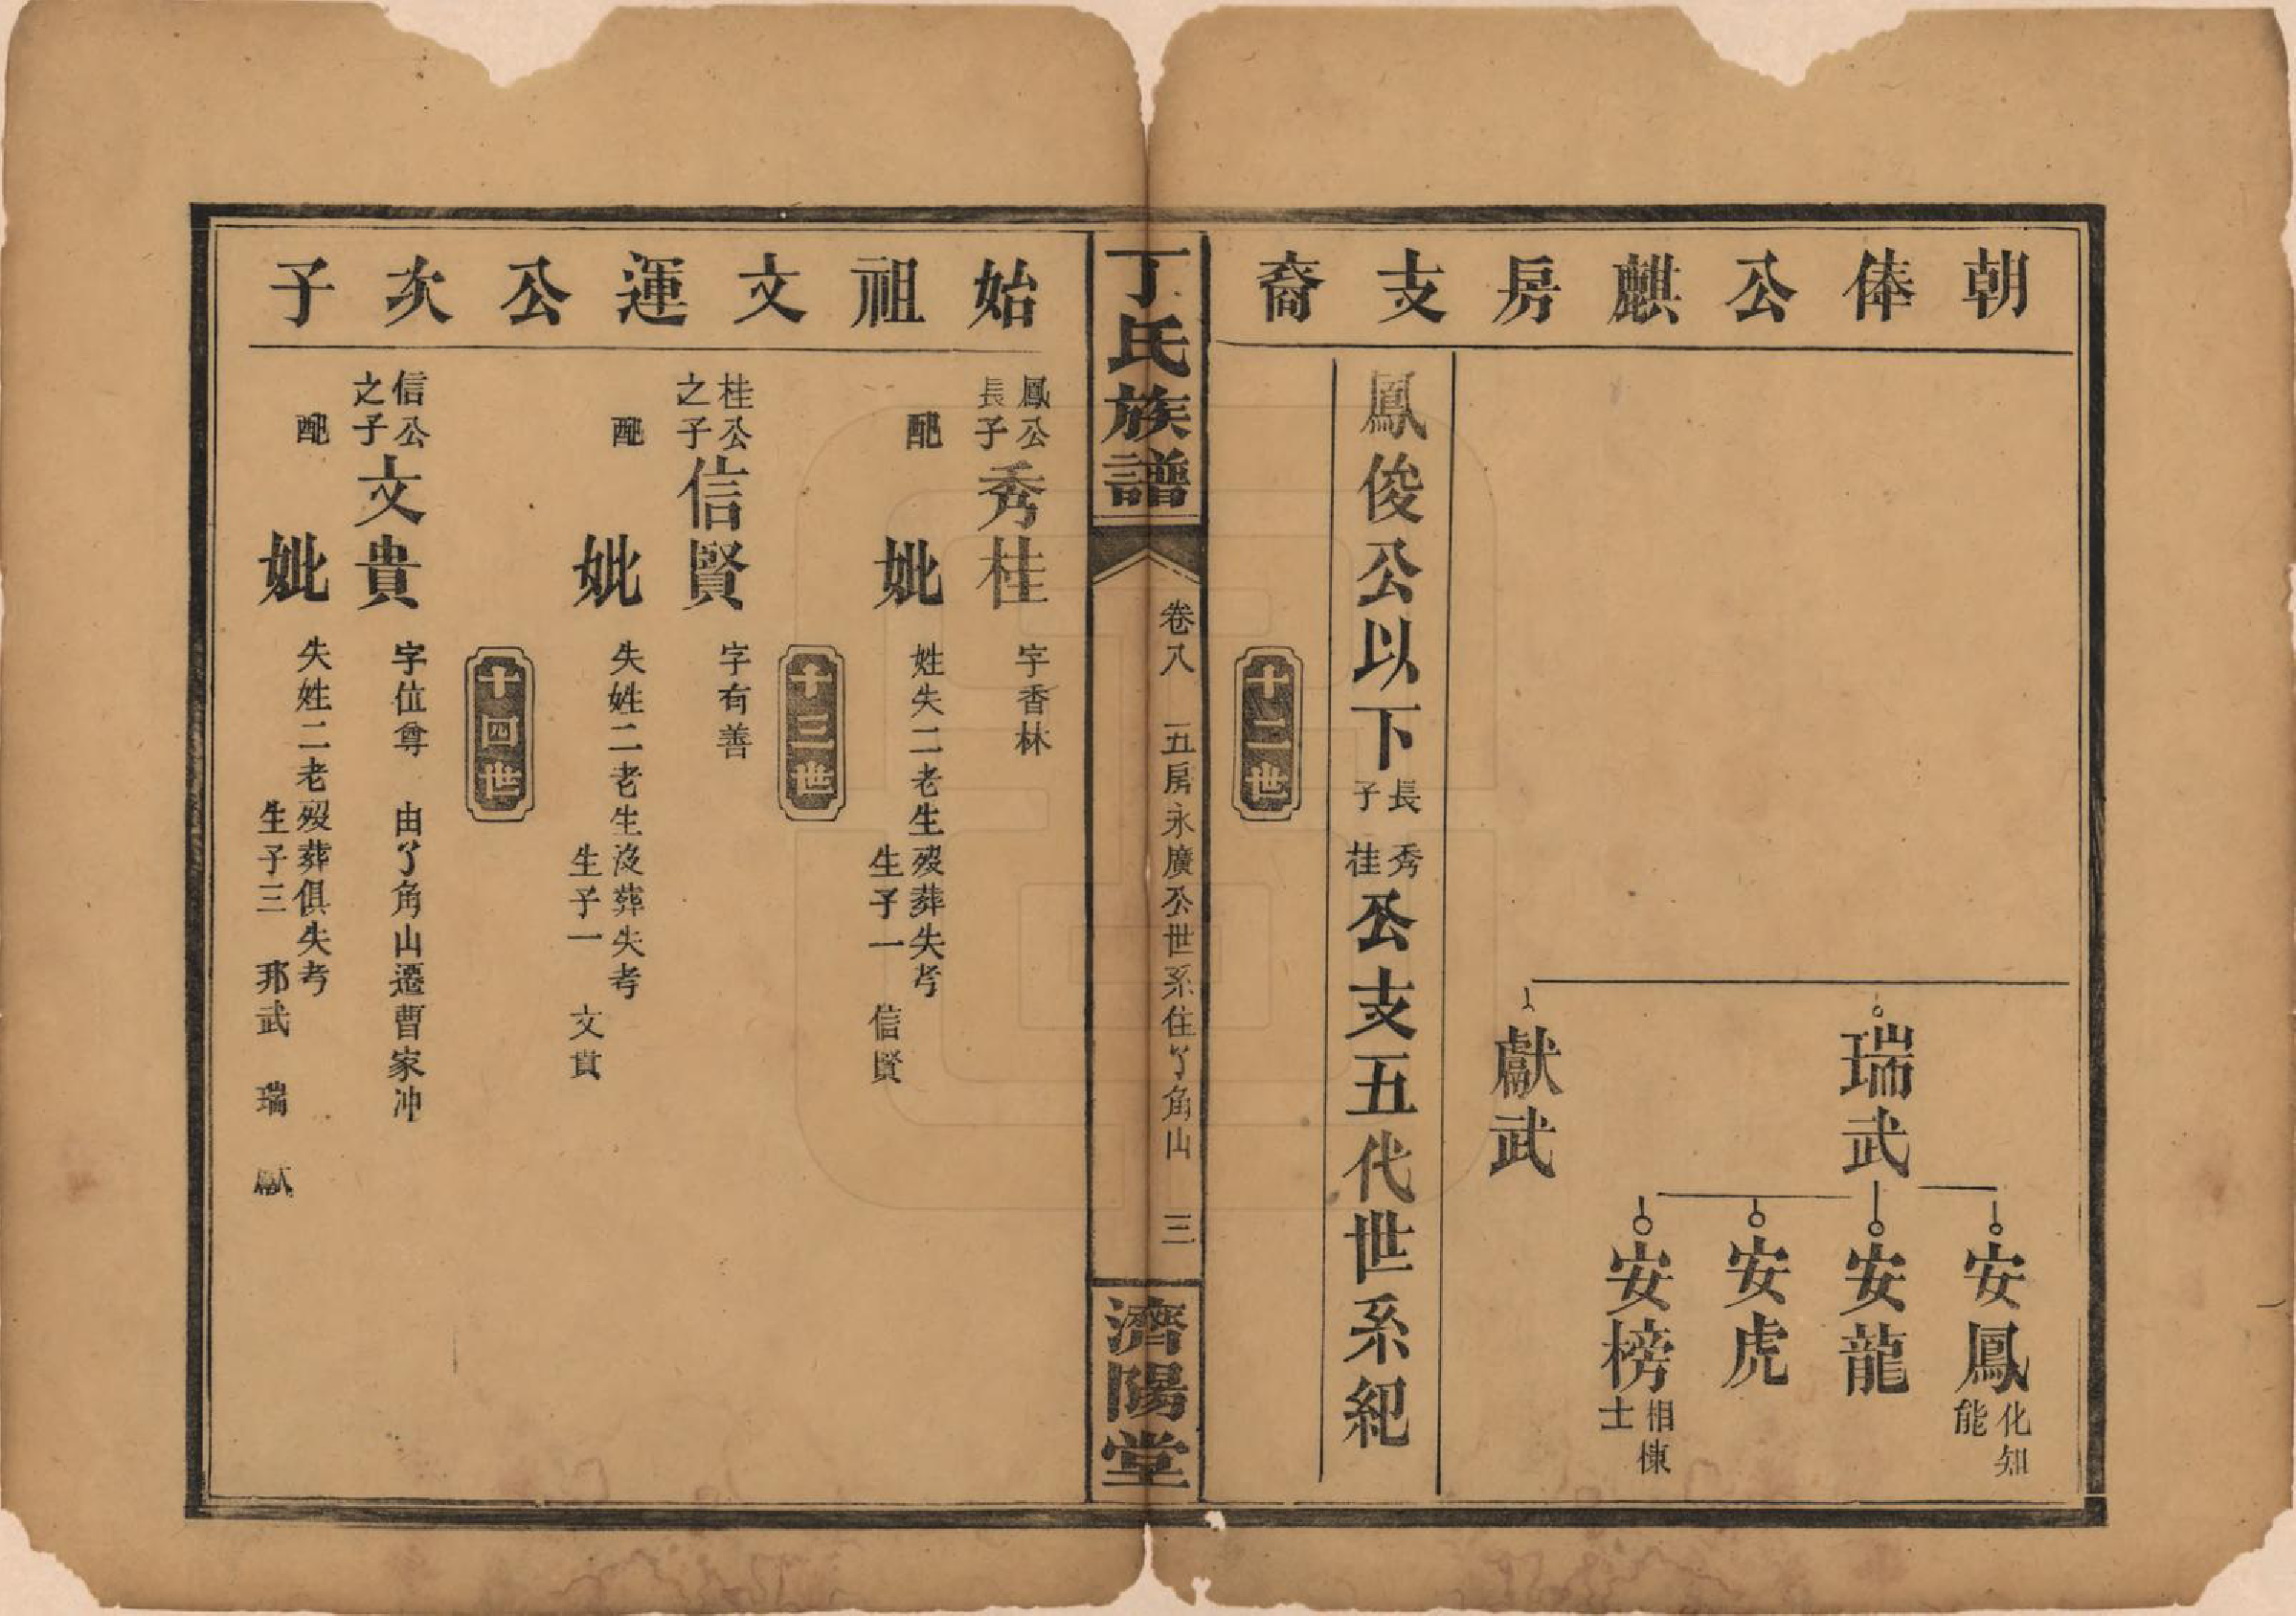 朝俸公麒房支裔
瑞武
安鳳 化知能
安龍
安虎
安榜 相棟士
獻武
鳳俊公以下長子秀桂公支五代世系紀
十二世
丁氏族譜
卷八 五房永廣公世系住了角山 三
濟陽堂
始祖文運公次子
鳳公長子秀桂 字香林
配妣 姓失二老生歿葬失考
生子一 信賢
十三世
桂公之子信賢 字有善
配妣 失姓二老生没葬失考
生子一 文貴
十四世
信公之子文貴 字位尊 由了角山遷曹家冲
配妣 失姓二老歿葬俱失考
生子三 邦武 瑞 獻